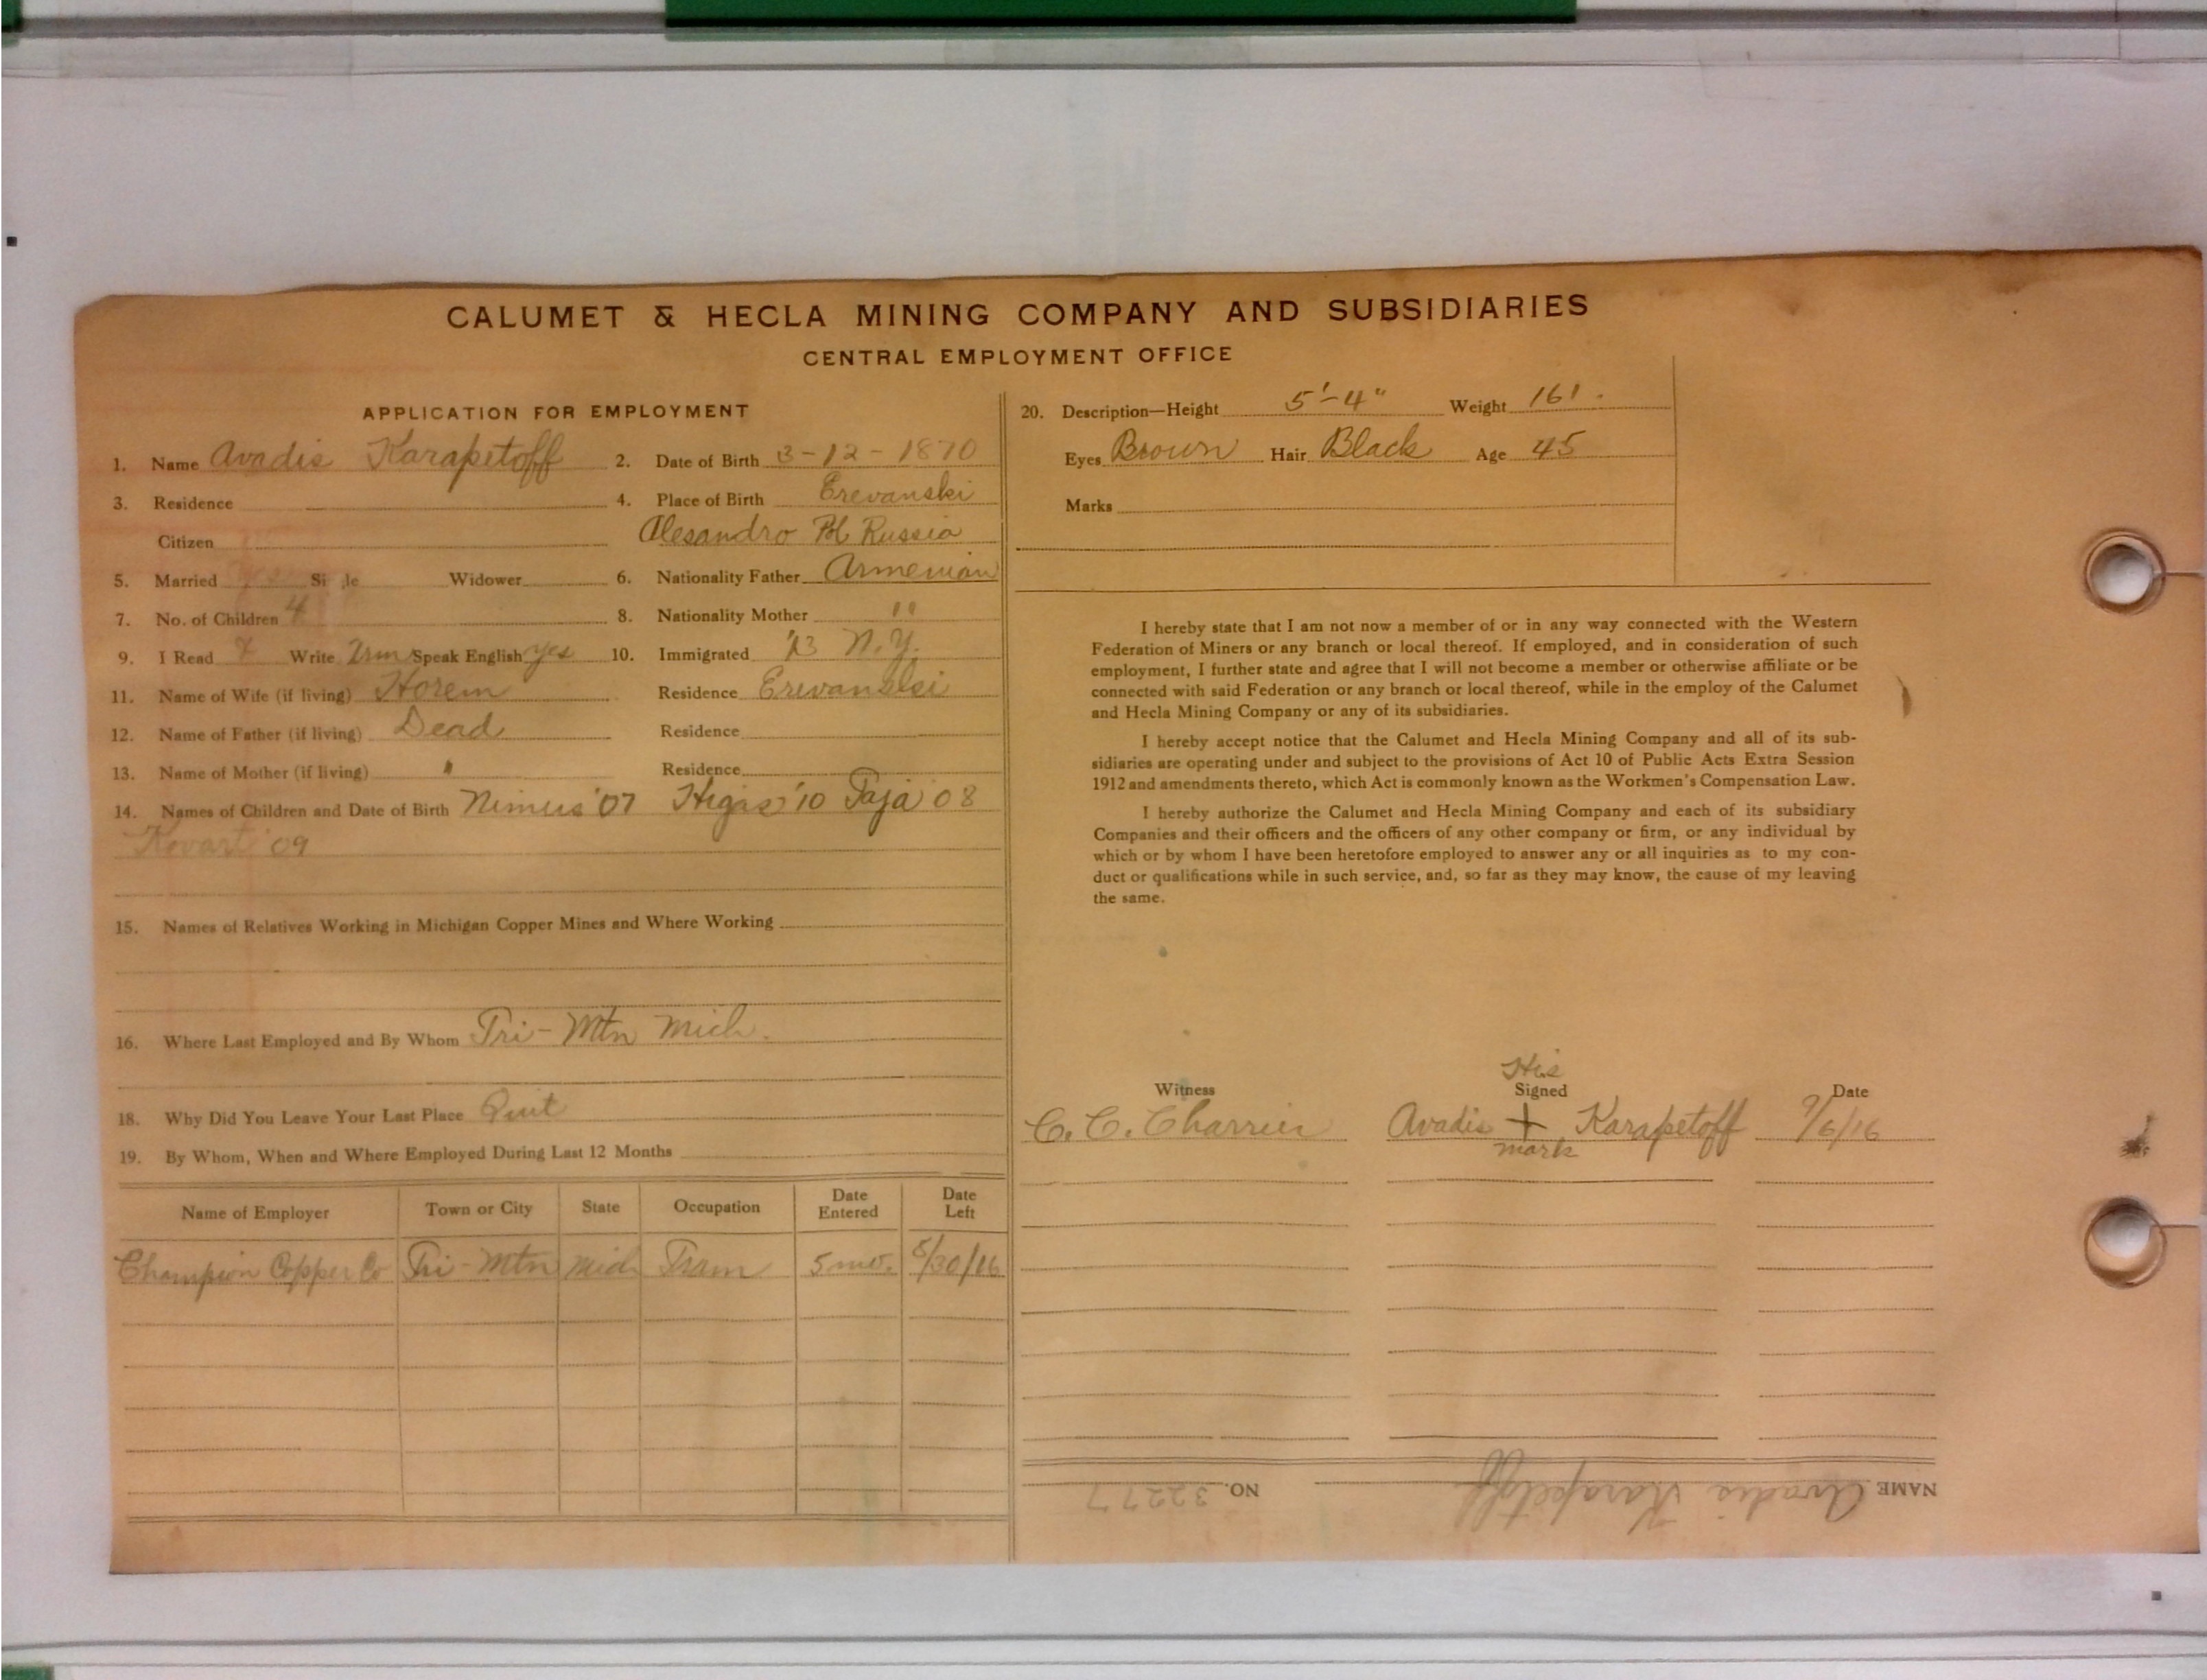 CALUMET & HECLA MINING COMPANY AND SUBSIDIARIES
CENTRAL EMPLOYMENT OFFICE
APPLICATION FOR EMPLOYMENT
1. Name Avadis Karapetoff 2. Date of Birth 3-12-1870
3. Residence 4. Place of Birth Erevanski
Citizen Alesandro Pol Russia
5. Married Si le Widower 6. Nationality Father Armenian
7. No. of Children 4 8. Nationality Mother "
9. I Read Write Speak English yes 10. Immigrated '13 N.Y.
11. Name of Wife (if living) Horem Residence Erevanski
12. Name of Father (if living) Dead Residence
13. Name of Mother (if living) " Residence
14. Names of Children and Date of Birth Nimus '07 Higas '10 Taja '08
Kevart '09
15. Names of Relatives Working in Michigan Copper Mines and Where Working
16. Where Last Employed and By Whom Tri-Mtn Mich.
18. Why Did You Leave Your Last Place Quit
19. By Whom, When and Where Employed During Last 12 Months
Name of Employer Town or City State Occupation Date Entered Date Left
Champion Copper Co Tri-Mtn Mich Tram 5 mo. 5/30/16
20. Description—Height 5'-4" Weight 161.
Eyes Brown Hair Black Age 45
Marks
I hereby state that I am not now a member of or in any way connected with the Western
Federation of Miners or any branch or local thereof. If employed, and in consideration of such
employment, I further state and agree that I will not become a member or otherwise affiliate or be
connected with said Federation or any branch or local thereof, while in the employ of the Calumet
and Hecla Mining Company or any of its subsidiaries.
I hereby accept notice that the Calumet and Hecla Mining Company and all of its sub-
sidiaries are operating under and subject to the provisions of Act 10 of Public Acts Extra Session
1912 and amendments thereto, which Act is commonly known as the Workmen's Compensation Law.
I hereby authorize the Calumet and Hecla Mining Company and each of its subsidiary
Companies and their officers and the officers of any other company or firm, or any individual by
which or by whom I have been heretofore employed to answer any or all inquiries as to my con-
duct or qualifications while in such service, and, so far as they may know, the cause of my leaving
the same.
His
Witness Signed Date
C. C. Charrier Avadis + Karapetoff 9/6/16
mark
NAME Avadis Karapetoff NO. 32277